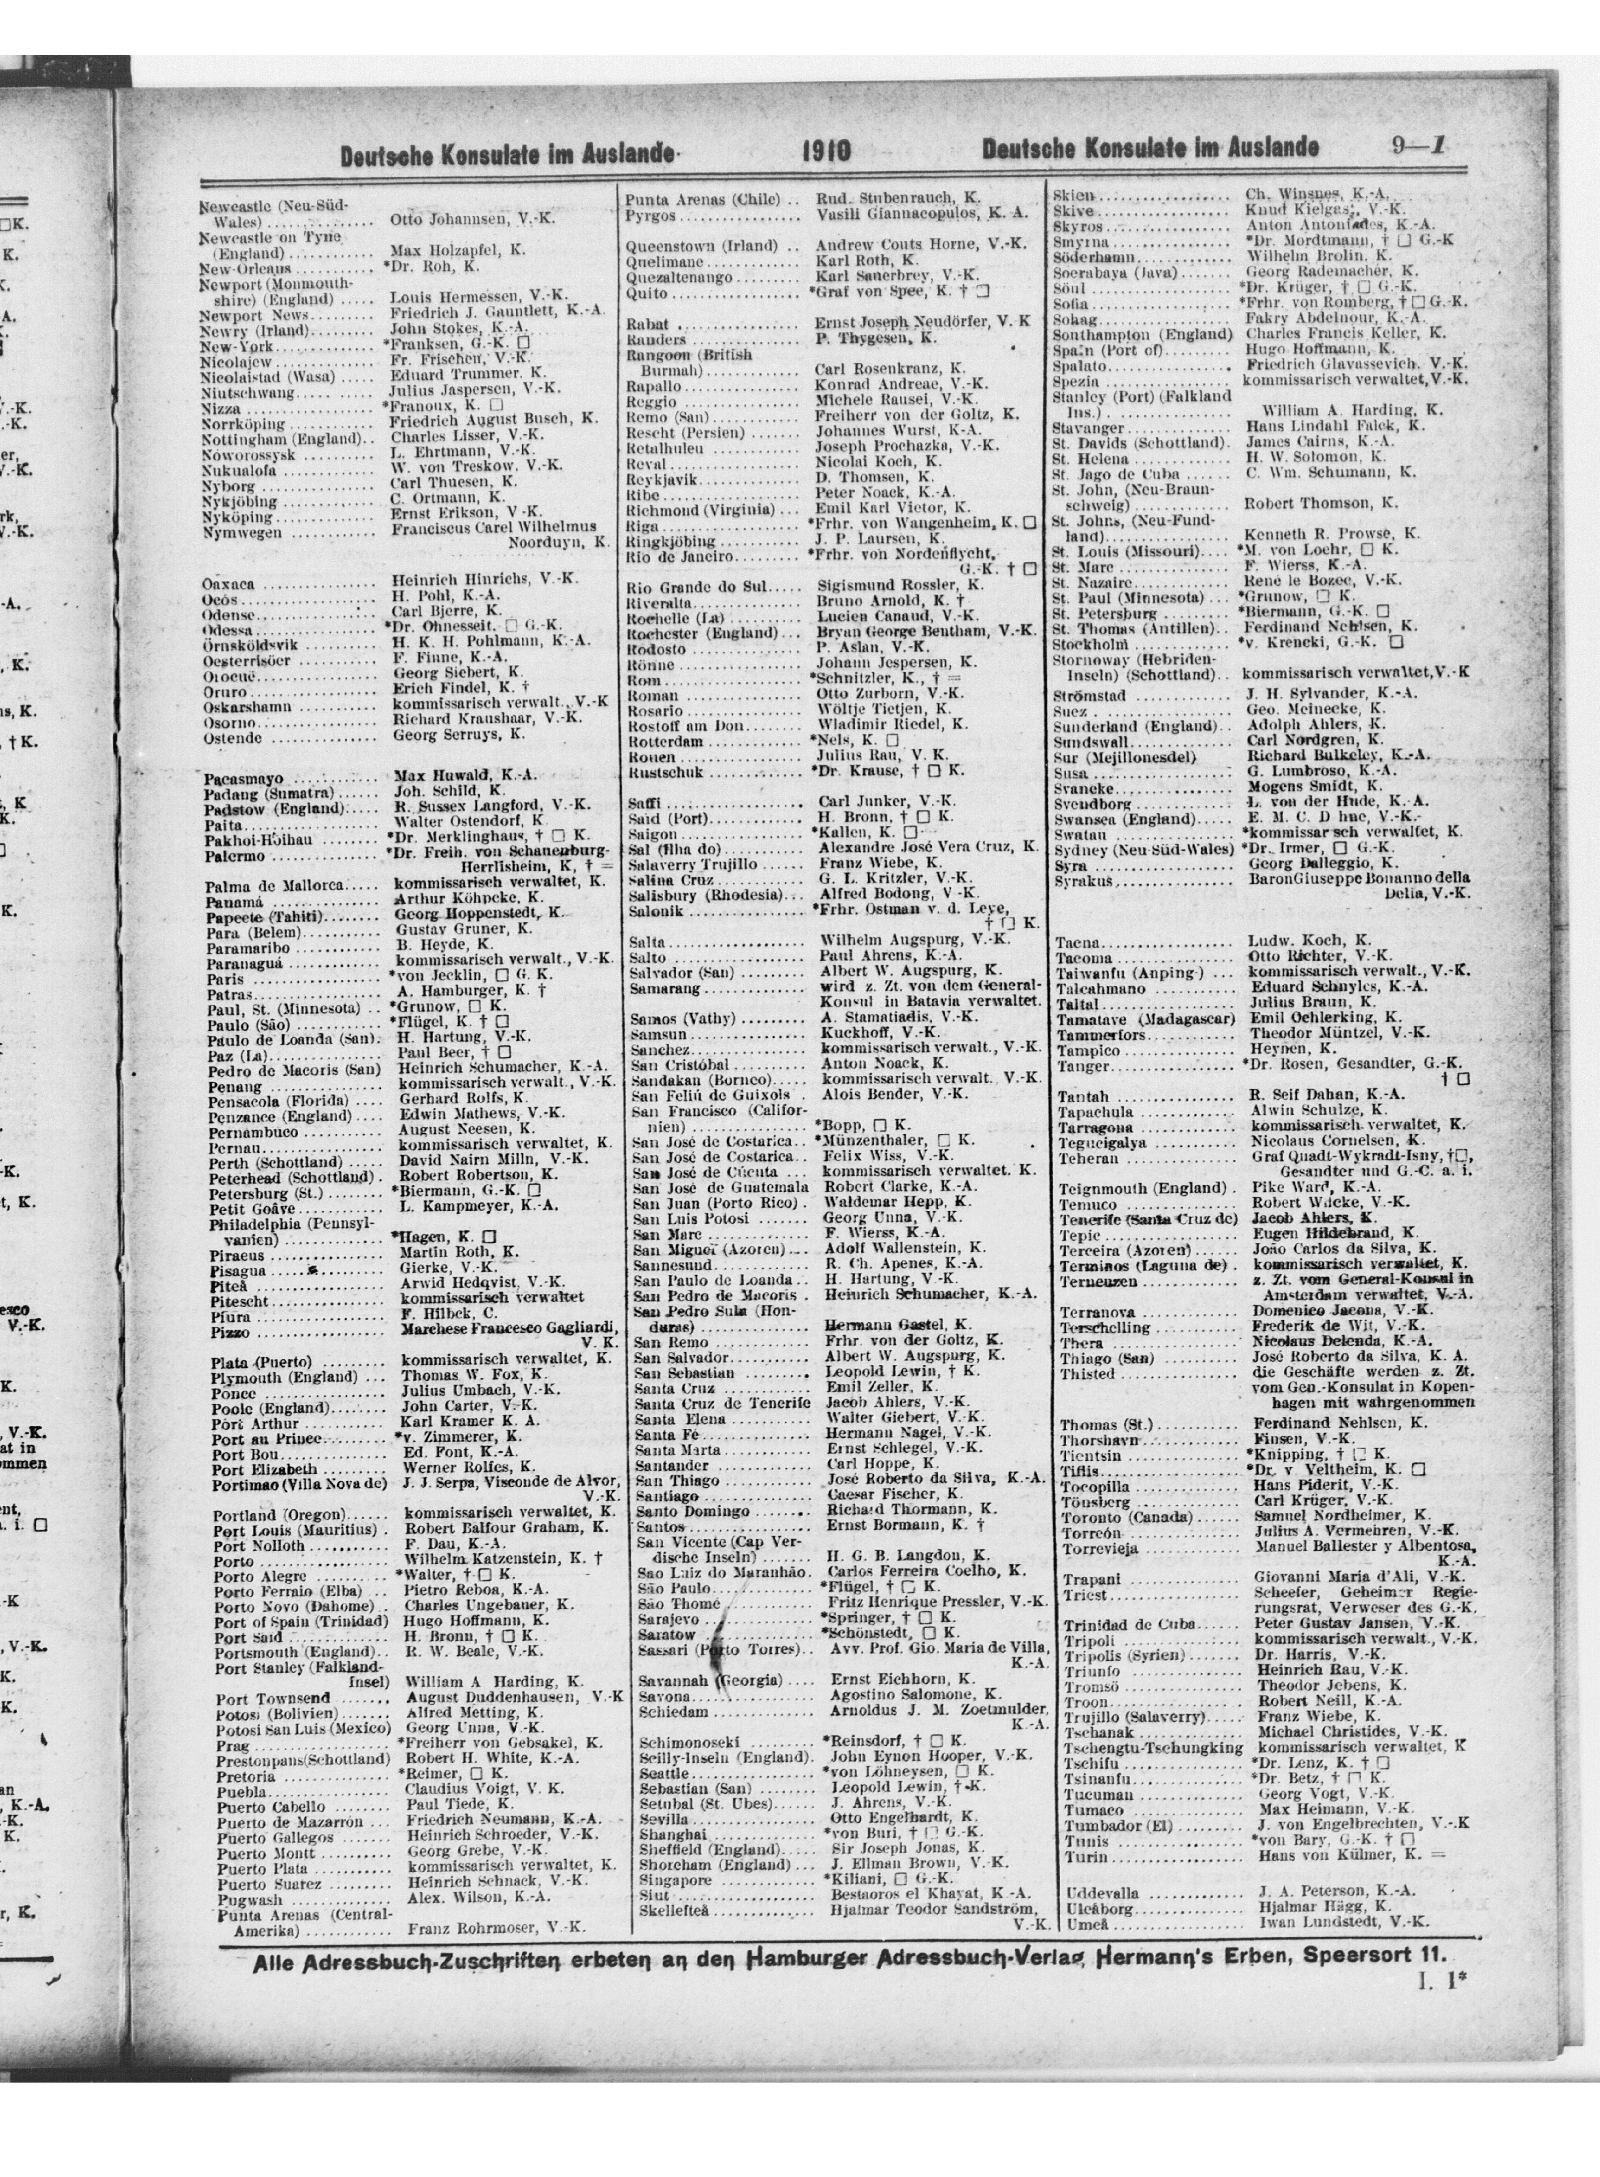 Deutsche Konsulate im Auslande 1910 Deutsche Konsulate im Auslande 9—1
Newcastle (Neu-Süd-
Wales) .............. Otto Johannsen, V.-K.
Newcastle on Tyne
(England) ........... Max Holzapfel, K.
New-Orleans ........... *Dr. Roh, K.
Newport (Monmouth-
shire) (England) ..... Louis Hermessen, V.-K.
Newport News......... Friedrich J. Gauntlett, K.-A.
Newry (Irland)......... John Stokes, K.-A.
New-York.............. *Franksen, G.-K. □
Nicolajew .............. Fr. Frischen, V.-K.
Nicolaistad (Wasa) ..... Eduard Trummer. K.
Niutschwang........... Julius Jaspersen, V.-K.
Nizza .................. *Franoux, K. □
Norrköping ............ Friedrich August Busch, K.
Nottingham (England).. Charles Lisser, V.-K.
Noworossysk .......... L. Ehrtmann, V.-K.
Nukualofa ............. W. von Treskow, V.-K.
Nyborg ................ Carl Thuesen, K.
Nykjöbing ............. C. Ortmann, K.
Nyköping .............. Ernst Erikson, V.-K.
Nymwegen ............ Franciscus Carel Wilhelmus
Noorduyn, K.
Oaxaca ................ Heinrich Hinrichs, V.-K.
Ocós................... H. Pohl, K.-A.
Odense................. Carl Bjerre, K.
Odessa................. *Dr. Ohnesseit. □ G.-K.
Örnsköldsvik .......... H. K. H. Pohlmann, K.-A.
Oesterrisöer ........... F. Finne, K.-A.
Orocué................. Georg Siebert, K.
Oruro .................. Erich Findel, K. †
Oskarshamn ........... kommissarisch verwalt., V.-K
Osorno................. Richard Kraushaar, V.-K.
Ostende ............... Georg Serruys, K.
Pacasmayo ............ Max Huwald, K.-A.
Padang (Sumatra) ...... Joh. Schild, K.
Padstow (England)..... R. Sussex Langford, V.-K.
Paita................... Walter Ostendorf, K
Pakhoi-Hoihau ........ *Dr. Merklinghaus, † □ K.
Palermo ............... *Dr. Freih. von Schauenburg-
Herrlisheim, K, † =
Palma de Mallorca..... kommissarisch verwaltet, K.
Panamá ............... Arthur Köhpcke, K.
Papeete (Tahiti)........ Georg Hoppenstedt, K.
Para (Belem)........... Gustav Gruner, K.
Paramaribo ............ B. Heyde, K.
Paranaguá ............. kommissarisch verwalt., V.-K.
Paris .................. *von Jecklin, □ G. K.
Patras.................. A. Hamburger, K. †
Paul, St. (Minnesota) .. *Grunow, □ K.
Paulo (São) ............ *Flügel, K. † □
Paulo de Loanda (San). H. Hartung, V.-K.
Paz (La)................ Paul Beer, † □
Pedro de Macoris (San) Heinrich Schumacher, K.-A.
Penang ................ kommissarisch verwalt., V.-K.
Pensacola (Florida) .... Gerhard Rolfs, K.
Penzance (England) .... Edwin Mathews, V.-K.
Pernambuco ........... August Neesen, K.
Pernau................. kommissarisch verwaltet, K.
Perth (Schottland) ..... David Nairn Milln, V.-K.
Peterhead (Schottland) . Robert Robertson, K.
Petersburg (St.) ........ *Biermann, G.-K. □
Petit Goâve............ L. Kampmeyer, K.-A.
Philadelphia (Pennsyl-
vanien) .............. *Hagen, K. □
Piraeus ................ Martin Roth, K.
Pisagua ................ Gierke, V.-K.
Piteå ................... Arwid Hedqvist, V.-K.
Pitescht ................ kommissarisch verwaltet
Piura .................. F. Hilbck, C.
Pizzo .................. Marchese Francesco Gagliardi,
V. K.
Plata (Puerto) ......... kommissarisch verwaltet, K.
Plymouth (England) ... Thomas W. Fox, K.
Ponce ................. Julius Umbach, V.-K.
Poole (England)........ John Carter, V.-K.
Port Arthur ........... Karl Kramer K. A.
Port au Prince......... *v. Zimmerer, K.
Port Bou............... Ed. Font, K.-A.
Port Elizabeth ......... Werner Rolfes, K.
Portimao (Villa Nova de) J. J. Serpa, Visconde de Alvor,
V.-K.
Portland (Oregon)...... kommissarisch verwaltet, K.
Port Louis (Mauritius) . Robert Balfour Graham, K.
Port Nolloth ........... F. Dau, K.-A.
Porto .................. Wilhelm Katzenstein, K. †
Porto Alegre ........... *Walter, † □ K.
Porto Ferraio (Elba) .. Pietro Reboa, K.-A.
Porto Novo (Dahome) .. Charles Ungebauer, K.
Port of Spain (Trinidad) Hugo Hoffmann, K.
Port Said .............. H. Bronn, † □ K.
Portsmouth (England).. R. W. Beale, V.-K.
Port Stanley (Falkland-
Insel) William A Harding, K.
Port Townsend ....... August Duddenhausen, V.-K
Potosi (Bolivien) ....... Alfred Metting, K.
Potosi San Luis (Mexico) Georg Unna, V.-K.
Prag ................... *Freiherr von Gebsakel, K.
Prestonpans(Schottland) Robert H. White, K.-A.
Pretoria ............... *Reimer, □ K.
Puebla................. Claudius Voigt, V. K.
Puerto Cabello ........ Paul Tiede, K.
Puerto de Mazarron ... Friedrich Neumann, K.-A.
Puerto Gallegos ....... Heinrich Schroeder, V.-K.
Puerto Montt .......... Georg Grebe, V.-K.
Puerto Plata ........... kommissarisch verwaltet, K.
Puerto Suarez ......... Heinrich Schnack, V.-K.
Pugwash .............. Alex. Wilson, K.-A.
Punta Arenas (Central-
Amerika) ............ Franz Rohrmoser, V.-K.
Punta Arenas (Chile) .. Rud. Stubenrauch, K.
Pyrgos................. Vasili Giannacopulos, K. A.
Queenstown (Irland) .. Andrew Couts Horne, V.-K.
Quelimane ............ Karl Roth, K.
Quezaltenango ........ Karl Sauerbrey, V.-K.
Quito .................. *Graf von Spee, K. † □
Rabat ................. Ernst Joseph Neudörfer, V. K
Randers ............... P. Thygesen, K.
Rangoon (British
Burmah) ............. Carl Rosenkranz, K.
Rapallo ................ Konrad Andreae, V.-K.
Reggio ................ Michele Rausei, V.-K.
Remo (San)............ Freiherr von der Goltz, K.
Rescht (Persien) ....... Johannes Wurst, K-A.
Retalhuleu ............ Joseph Prochazka, V.-K.
Reval.................. Nicolai Koch, K.
Reykjavik.............. D. Thomsen, K.
Ribe ................... Peter Noack, K.-A.
Richmond (Virginia) ... Emil Karl Victor, K.
Riga ................... *Frhr. von Wangenheim, K. □
Ringkjöbing ........... J. P. Laursen, K.
Rio de Janeiro.......... *Frhr. von Nordenflycht,
G.-K. † □
Rio Grande do Sul..... Sigismund Rossler, K.
Riveralta............... Bruno Arnold, K. †
Rochelle (La) .......... Lucien Canaud, V.-K.
Rochester (England)... Bryan George Bentham, V.-K.
Rodosto ............... P. Aslan, V.-K.
Rönne ................. Johann Jespersen, K.
Rom ................... *Schnitzler, K., † =
Roman ................ Otto Zurborn, V.-K.
Rosario ................ Wöltje Tietjen, K.
Rostoff am Don........ Wladimir Riedel, K.
Rotterdam ............. *Nels, K. □
Rouen ................. Julius Rau, V. K.
Rustschuk ............. *Dr. Krause, † □ K.
Saffi ................... Carl Junker, V.-K.
Said (Port) ............. H. Bronn, † □ K.
Saigon ................. *Kallen, K. □
Sal (Ilha do)............ Alexandre José Vera Cruz, K.
Salaverry Trujillo ...... Franz Wiebe, K.
Salina Cruz............. G. L. Kritzler, V.-K.
Salisbury (Rhodesia)... Alfred Bodong, V.-K.
Salonik ................ *Frhr. Ostman v. d. Leye,
† □ K.
Salta................... Wilhelm Augspurg, V.-K.
Salto .................. Paul Ahrens, K.-A.
Salvador (San) ......... Albert W. Augspurg, K.
Samarang.............. wird z. Zt. von dem General-
Konsul in Batavia verwaltet.
Samos (Vathy) ......... A. Stamatiadis, V.-K.
Samsun ................ Kuckhoff, V.-K.
Sanchez................ kommissarisch verwalt., V.-K.
San Cristóbal .......... Anton Noack, K.
Sandakan (Borneo)..... kommissarisch verwalt. V.-K.
San Feliú de Guixols . Alois Bender, V.-K.
San Francisco (Califor-
nien) ................ *Bopp, □ K.
San José de Costarica.. *Münzenthaler, □ K.
San José de Costarica.. Felix Wiss, V.-K.
San José de Cúcuta ... kommissarisch verwaltet. K.
San José de Guatemala Robert Clarke, K.-A.
San Juan (Porto Rico) . Waldemar Hepp, K.
San Luis Potosi ....... Georg Unna, V.-K.
San Marc .............. F. Wierss, K.-A.
San Miguel (Azoren) ... Adolf Wallenstein, K.
Sannesund............. R. Ch. Apenes, K.-A.
San Paulo de Loanda .. H. Hartung, V.-K.
San Pedro de Macoris . Heinrich Schumacher, K.-A.
San Pedro Sula (Hon-
duras) ............... Hermann Gastel, K.
San Remo ............. Frhr. von der Goltz, K.
San Salvador........... Albert W. Augspurg, K.
San Sebastian ......... Leopold Lewin, † K.
Santa Cruz ............ Emil Zeller, K.
Santa Cruz de Tenerife Jacob Ahlers, V.-K.
Santa Elena ........... Walter Giebert, V.-K.
Santa Fé............... Hermann Nagel, V.-K.
Santa Marta............ Ernst Schlegel, V.-K.
Santander ............. Carl Hoppe, K.
San Thiago ............ José Roberto da Silva, K.-A.
Santiago ............... Caesar Fischer, K.
Santo Domingo ........ Richard Thormann, K.
Santos ................. Ernst Bormann, K. †
San Vicente (Cap Ver-
dische Inseln) ....... H. G. B. Langdon, K.
Sao Luiz do Maranhão. Carlos Ferreira Coelho, K.
São Paulo.............. *Flügel, † □ K.
São Thomé ............ Fritz Henrique Pressler, V.-K.
Sarajevo ............... *Springer, † □ K.
Saratow ............... *Schönstedt, □ K.
Sassari (Porto Torres).. Avv. Prof. Gio. Maria de Villa,
K.-A.
Savannah (Georgia) .... Ernst Eichhorn, K.
Savona................. Agostino Salomone, K.
Schiedam .............. Arnoldus J. M. Zoetmulder,
K.-A.
Schimonoseki ......... *Reinsdorf, † □ K.
Scilly-Inseln (England). John Eynon Hooper, V.-K.
Seattle................. *von Löhneysen, □ K.
Sebastian (San) ........ Leopold Lewin, † K.
Setubal (St. Ubes)...... J. Ahrens, V.-K.
Sevilla ................. Otto Engelhardt, K.
Shanghai .............. *von Buri, † □ G.-K.
Sheffield (England)..... Sir Joseph Jonas, K.
Shoreham (England)... J. Ellman Brown, V.-K.
Singapore ............. *Kiliani, □ G.-K.
Siut .................... Bestaoros el Khayat, K.-A.
Skellefteå .............. Hjalmar Teodor Sandström,
V.-K.
Skien .................. Ch. Winsnes, K.-A.
Skive................... Knud Kielgast, V.-K.
Skyros.................. Anton Antoniades, K.-A.
Smyrna ................ *Dr. Mordtmann, † □ G.-K
Söderhamn............. Wilhelm Brolin, K.
Soerabaya (Java) ....... Georg Rademacher, K.
Söul ................... *Dr. Krüger, †, □ G.-K.
Sofia ................... *Frhr. von Romberg, † □ G.-K.
Sohag.................. Fakry Abdelnour, K.-A.
Southampton (England) Charles Francis Keller, K.
Spain (Port of)......... Hugo Hoffmann, K.
Spalato................. Friedrich Glavassevich, V.-K.
Spezia ................. kommissarisch verwaltet, V.-K.
Stanley (Port) (Falkland
Ins.) ................. William A. Harding, K.
Stavanger.............. Hans Lindahl Falck, K.
St. Davids (Schottland). James Cairns, K.-A.
St. Helena ............. H. W. Solomon, K.
St. Jago de Cuba ...... C. Wm. Schumann, K.
St. John, (Neu-Braun-
schweig) ............. Robert Thomson, K.
St. Johns, (Neu-Fund-
land)................. Kenneth R. Prowse, K.
St. Louis (Missouri).... *M. von Loehr, □ K.
St. Marc ............... F. Wierss, K.-A.
St. Nazaire............. René le Bozec, V.-K.
St. Paul (Minnesota) ... *Grunow, □ K.
St. Petersburg ......... *Biermann, G.-K. □
St. Thomas (Antillen).. Ferdinand Nehlsen, K.
Stockholm ............. *v. Krencki, G.-K. □
Stornoway (Hebriden-
Inseln) (Schottland).. kommissarisch verwaltet, V.-K
Strömstad ............. J. H. Sylvander, K.-A.
Suez ................... Geo. Meinecke, K.
Sunderland (England).. Adolph Ahlers, K.
Sundswall.............. Carl Nordgren, K.
Sur (Mejillonesdel) Richard Bulkeley, K.-A.
Susa ................... G. Lumbroso, K.-A.
Svaneke................ Mogens Smidt, K.
Svendborg ............. L. von der Hude, K.-A.
Swansea (England)..... E. M. C. D hne, V.-K.
Swatau ................ *kommissar sch verwaltet, K.
Sydney (Neu-Süd-Wales) *Dr. Irmer, □ G.-K.
Syra ................... Georg Dalleggio, K.
Syrakus................ Baron Giuseppe Bonanno della
Delia, V.-K.
Tacna.................. Ludw. Koch, K.
Tacoma ................ Otto Richter, V.-K.
Taiwanfu (Anping) ... kommissarisch verwalt., V.-K.
Talcahmano ........... Eduard Schnyles, K.-A.
Taltal................... Julius Braun, K.
Tamatave (Madagascar) Emil Oehlerking, K.
Tammerfors............ Theodor Müntzel, V.-K.
Tampico ............... Heynen, K.
Tanger................. *Dr. Rosen, Gesandter, G.-K.
† □
Tantah ................ R. Seif Dahan, K.-A.
Tapachula ............. Alwin Schulze, K.
Tarragona ............. kommissarisch verwaltet, K.
Tegucigalya ........... Nicolaus Cornelsen, K.
Teheran ............... Graf Quadt-Wykradt-Isny, † □,
Gesandter und G.-C. a. i.
Teignmouth (England) . Pike Ward, K.-A.
Temuco ............... Robert Wilcke, V.-K.
Tenerife (Santa Cruz de) Jacob Ahlers, K.
Tepic .................. Eugen Hildebrand, K.
Terceira (Azoren) ...... João Carlos da Silva, K.
Terminos (Laguna de) . kommissarisch verwaltet, K.
Terneuzen ............. z. Zt. vom General-Konsul in
Amsterdam verwaltet, V.-A.
Terranova ............. Domenico Jacona, V.-K.
Terschelling ........... Frederik de Wit, V.-K.
Thera .................. Nicolaus Delenda, K.-A.
Thiago (San) ........... José Roberto da Silva, K. A.
Thisted ................ die Geschäfte werden z. Zt.
vom Gen.-Konsulat in Kopen-
hagen mit wahrgenommen
Thomas (St.) ........... Ferdinand Nehlsen, K.
Thorshavn ............. Finsen, V.-K.
Tientsin ............... *Knipping, † □ K.
Tiflis................... *Dr. v Veltheim, K. □
Tocopilla .............. Hans Piderit, V.-K.
Tönsberg .............. Carl Krüger, V.-K.
Toronto (Canada) ...... Samuel Nordheimer, K.
Torreón................ Julius A. Vermehren, V.-K.
Torrevieja ............. Manuel Ballester y Albentosa,
K.-A.
Trapani ................ Giovanni Maria d'Ali, V.-K.
Triest.................. Scheefer, Geheimer Regie-
rungsrat, Verweser des G.-K.
Trinidad de Cuba...... Peter Gustav Jansen, V.-K.
Tripoli ................. kommissarisch verwalt., V.-K.
Tripolis (Syrien)........ Dr. Harris, V.-K.
Triunfo ................ Heinrich Rau, V.-K.
Tromsö ................ Theodor Jebens, K.
Troon.................. Robert Neill, K.-A.
Trujillo (Salaverry)..... Franz Wiebe, K.
Tschanak .............. Michael Christides, V.-K.
Tschengtu-Tschungking kommissarisch verwaltet, K
Tschifu ................ *Dr. Lenz, K. † □
Tsinanfu............... *Dr. Betz, † □ K.
Tucuman .............. Georg Vogt, V.-K.
Tumaco ............... Max Heimann, V.-K.
Tumbador (El) ......... J. von Engelbrechten, V.-K
Tunis .................. *von Bary, G.-K. † □
Turin .................. Hans von Külmer, K. =
Uddevalla ............. J. A. Peterson, K.-A.
Uleåborg .............. Hjalmar Hägg, K.
Umeå .................. Iwan Lundstedt, V.-K.
Alle Adressbuch-Zuschriften erbeten an den Hamburger Adressbuch-Verlag, Hermann's Erben, Speersort 11.
I. 1*